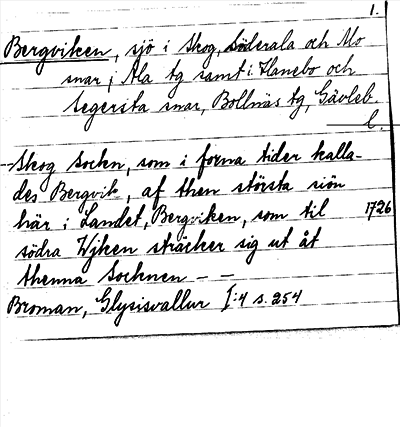 1.
Bergviken, sjö i Skog, Söderala och Mo
snar, Ala tg samt i Hanebo och
Segersta snar, Bollnäs tg, Gävleb.
l.
Skog Sockn, som i forna tider kalla-
des Bergvik, af then största siön
här i Landet, Bergviken, som til 1726
södra Wjken sträcker sig ut åt
thenna Socknen – –
Broman, Glysisvallur I:4 s. 254